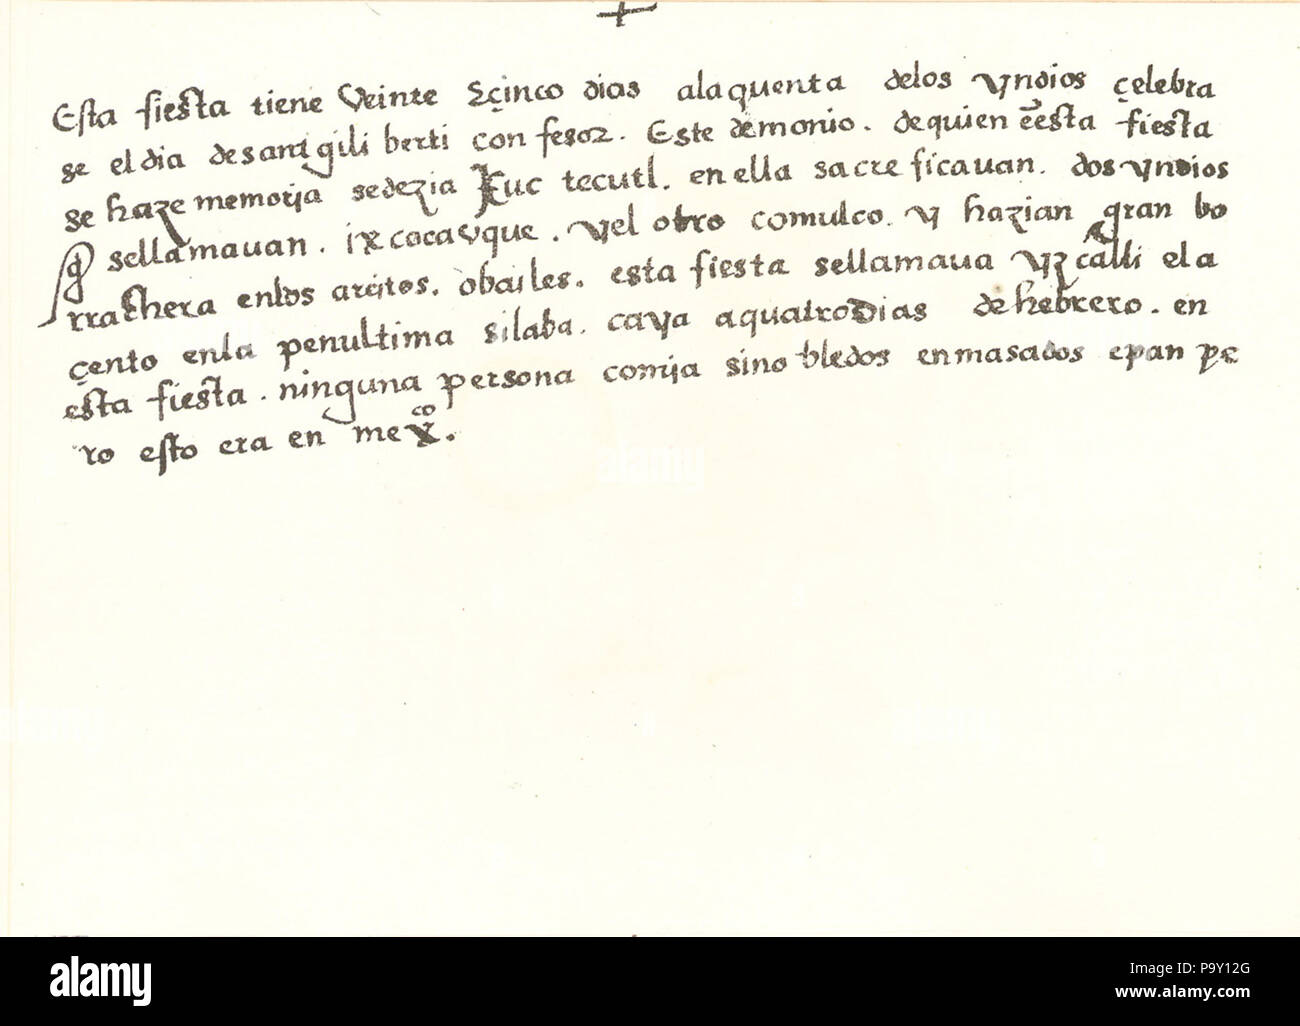 +
Esta fiesta tiene Veinte y çinco dias ala quenta delos yndios çelebra
se el dia de sant gili berti con fesor. Este demonio. de quien e esta fiesta
se haze memoria se dezia Xuc tecutl. en ella sacre ficauan. dos yndios
q se llamauan. ix cocauque. y el otro comulco. y hazian gran bo
rrachera enlos areitos. o bailes. esta fiesta se llamaua yzcalli el a
çento enla penultima silaba. caya a quatro Dias de hebrero. en
esta fiesta. ninguna persona comja sino bledos en masados e pan pe
ro esto era en mexco.
alamy
alamy
Image ID: P9Y12G
www.alamy.com